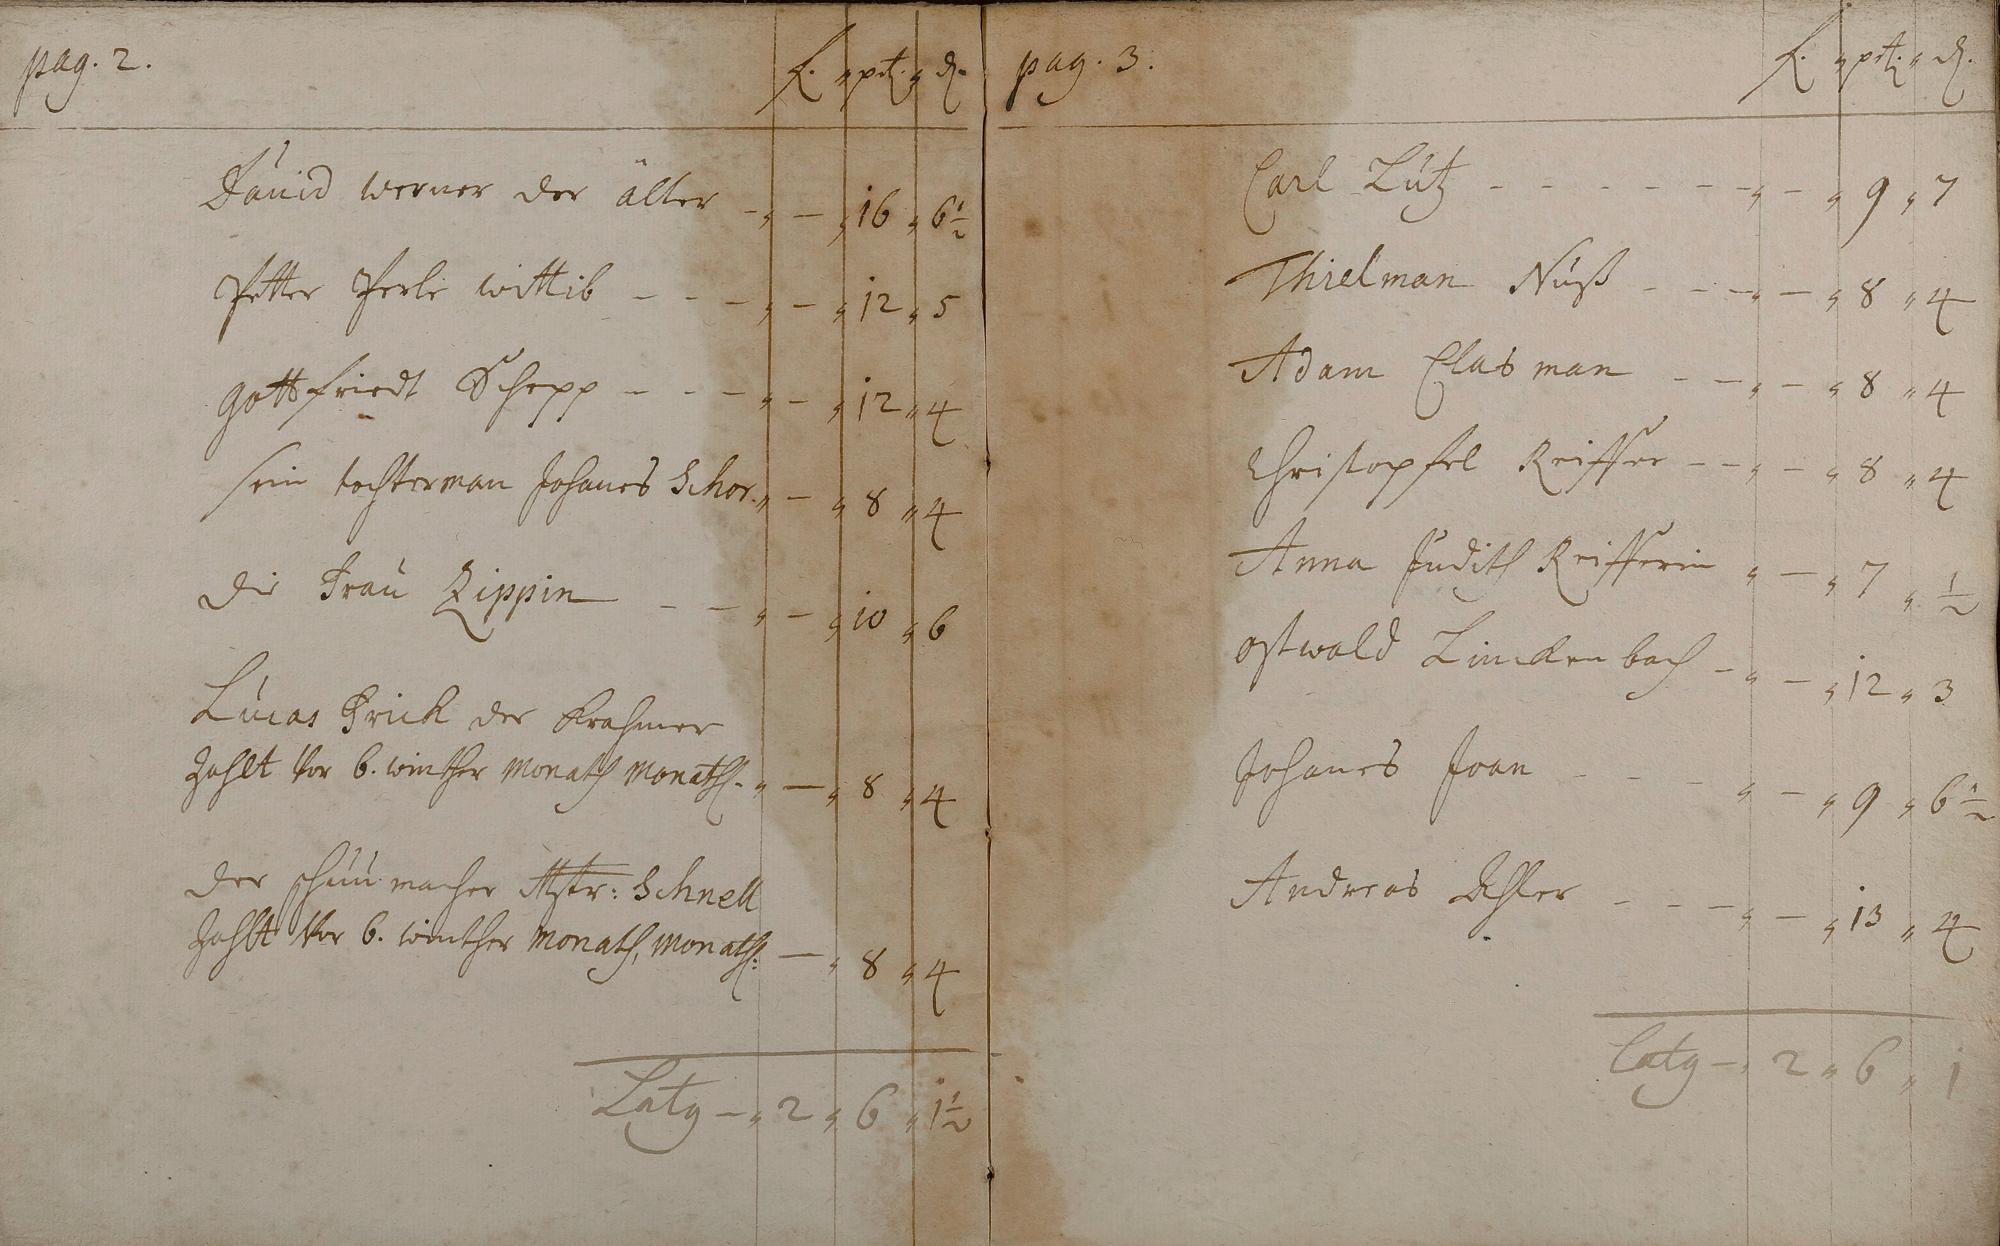 pag. 2.
f. " ptz. " d.
David werner der älter - " - " 16 " 6 1/2
Petter Perle wittib - - - " - " 12 " 5
gottfriedt Schepp - - - " - " 12 " 4
sein tochterman Johanes Schor. " - " 8 " 4
die Frau Zippin - - " - " 10 " 6
Lucas Frick der Krahmer
Zahlt Vor 6. winther Monath Monathl. " - " 8 " 4
der schuu macher Mstr: Schnell
Zahlt Vor 6. winther Monath, Monathl: - " 8 " 4
Latg - " 2 " 6 " 1 1/2
pag. 3.
f. " ptz. " d.
Carl Lutz - - - - - - " - " 9 " 7
Thielman Nuß - - - " - " 8 " 4
Adam Clasman - - " - " 8 " 4
Christopfel Reiffer - - " - " 8 " 4
Anna Judith Reifferin " - " 7 " 1/2
ostwald Linckenbach - " - " 12 " 3
Johanes Joan - - - " - " 9 " 6 1/2
Andreas - - - " - " 13 " 4
Latg - " 2 " 6 " 1